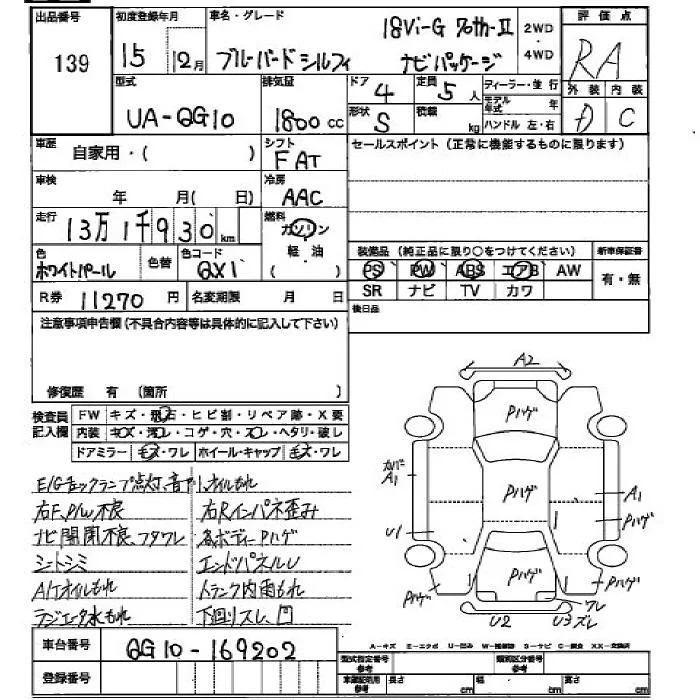 出品番号 初度登録年月 車名・グレード 18Vi-G 70th-II 2WD・4WD 評価点
139 15 12月 ブルーバードシルフィ ナビパッケージ RA
型式 排気量 ドア 4 定員 5人 ディーラー・並行 外装 内装
UA-QG10 1800cc 形状 S 積載 kg モデル年式 年 ハンドル 左・右 D C
車歴 自家用・( ) シフト FAT セールスポイント(正常に機能するものに限ります)
車検 年 月( 日) 冷房 AAC
走行 13万1千930km 燃料 ガソリン 軽油
色 ホワイトパール 色替 色コード QX1 装備品(純正品に限り○をつけてください) 新車保証書
PS PW ABS エアB AW 有・無
R券 11270円 名変期限 月 日 SR ナビ TV カワ
注意事項申告欄(不具合内容等は具体的に記入して下さい) 後日品
修復歴 有 (箇所 )
検査員記入欄 FW キズ・飛石・ヒビ割・リペア跡・X要
内装 キズ・汚レ・コゲ・穴・スレ・ヘタリ・破レ
ドアミラー キズ・ワレ ホイール・キャップ キズ・ワレ
E/Gチェックランプ点灯、音、オイルもれ
右F.P/W不良 右Rインパネ歪み
ナビ開閉不良、フタワレ 各ボディーPハゲ
シートシミ エンドパネルU
A/Tオイルもれ トランク内雨もれ
ラジエータ水もれ 下回りスレ、凹
車台番号 QG10-169202
登録番号
A2
Pハゲ
カバーA1
Pハゲ
A1
U1
Pハゲ
Pハゲ
Pハゲ
U2
U3
ワレ
ズレ
A-キズ E-エクボ U-凹み W-補修跡 S-サビ C-腐食 XX-交換済
型式指定番号 参考 類別区分番号 参考
車庫証明用 参考 長さ cm 幅 cm 高さ cm